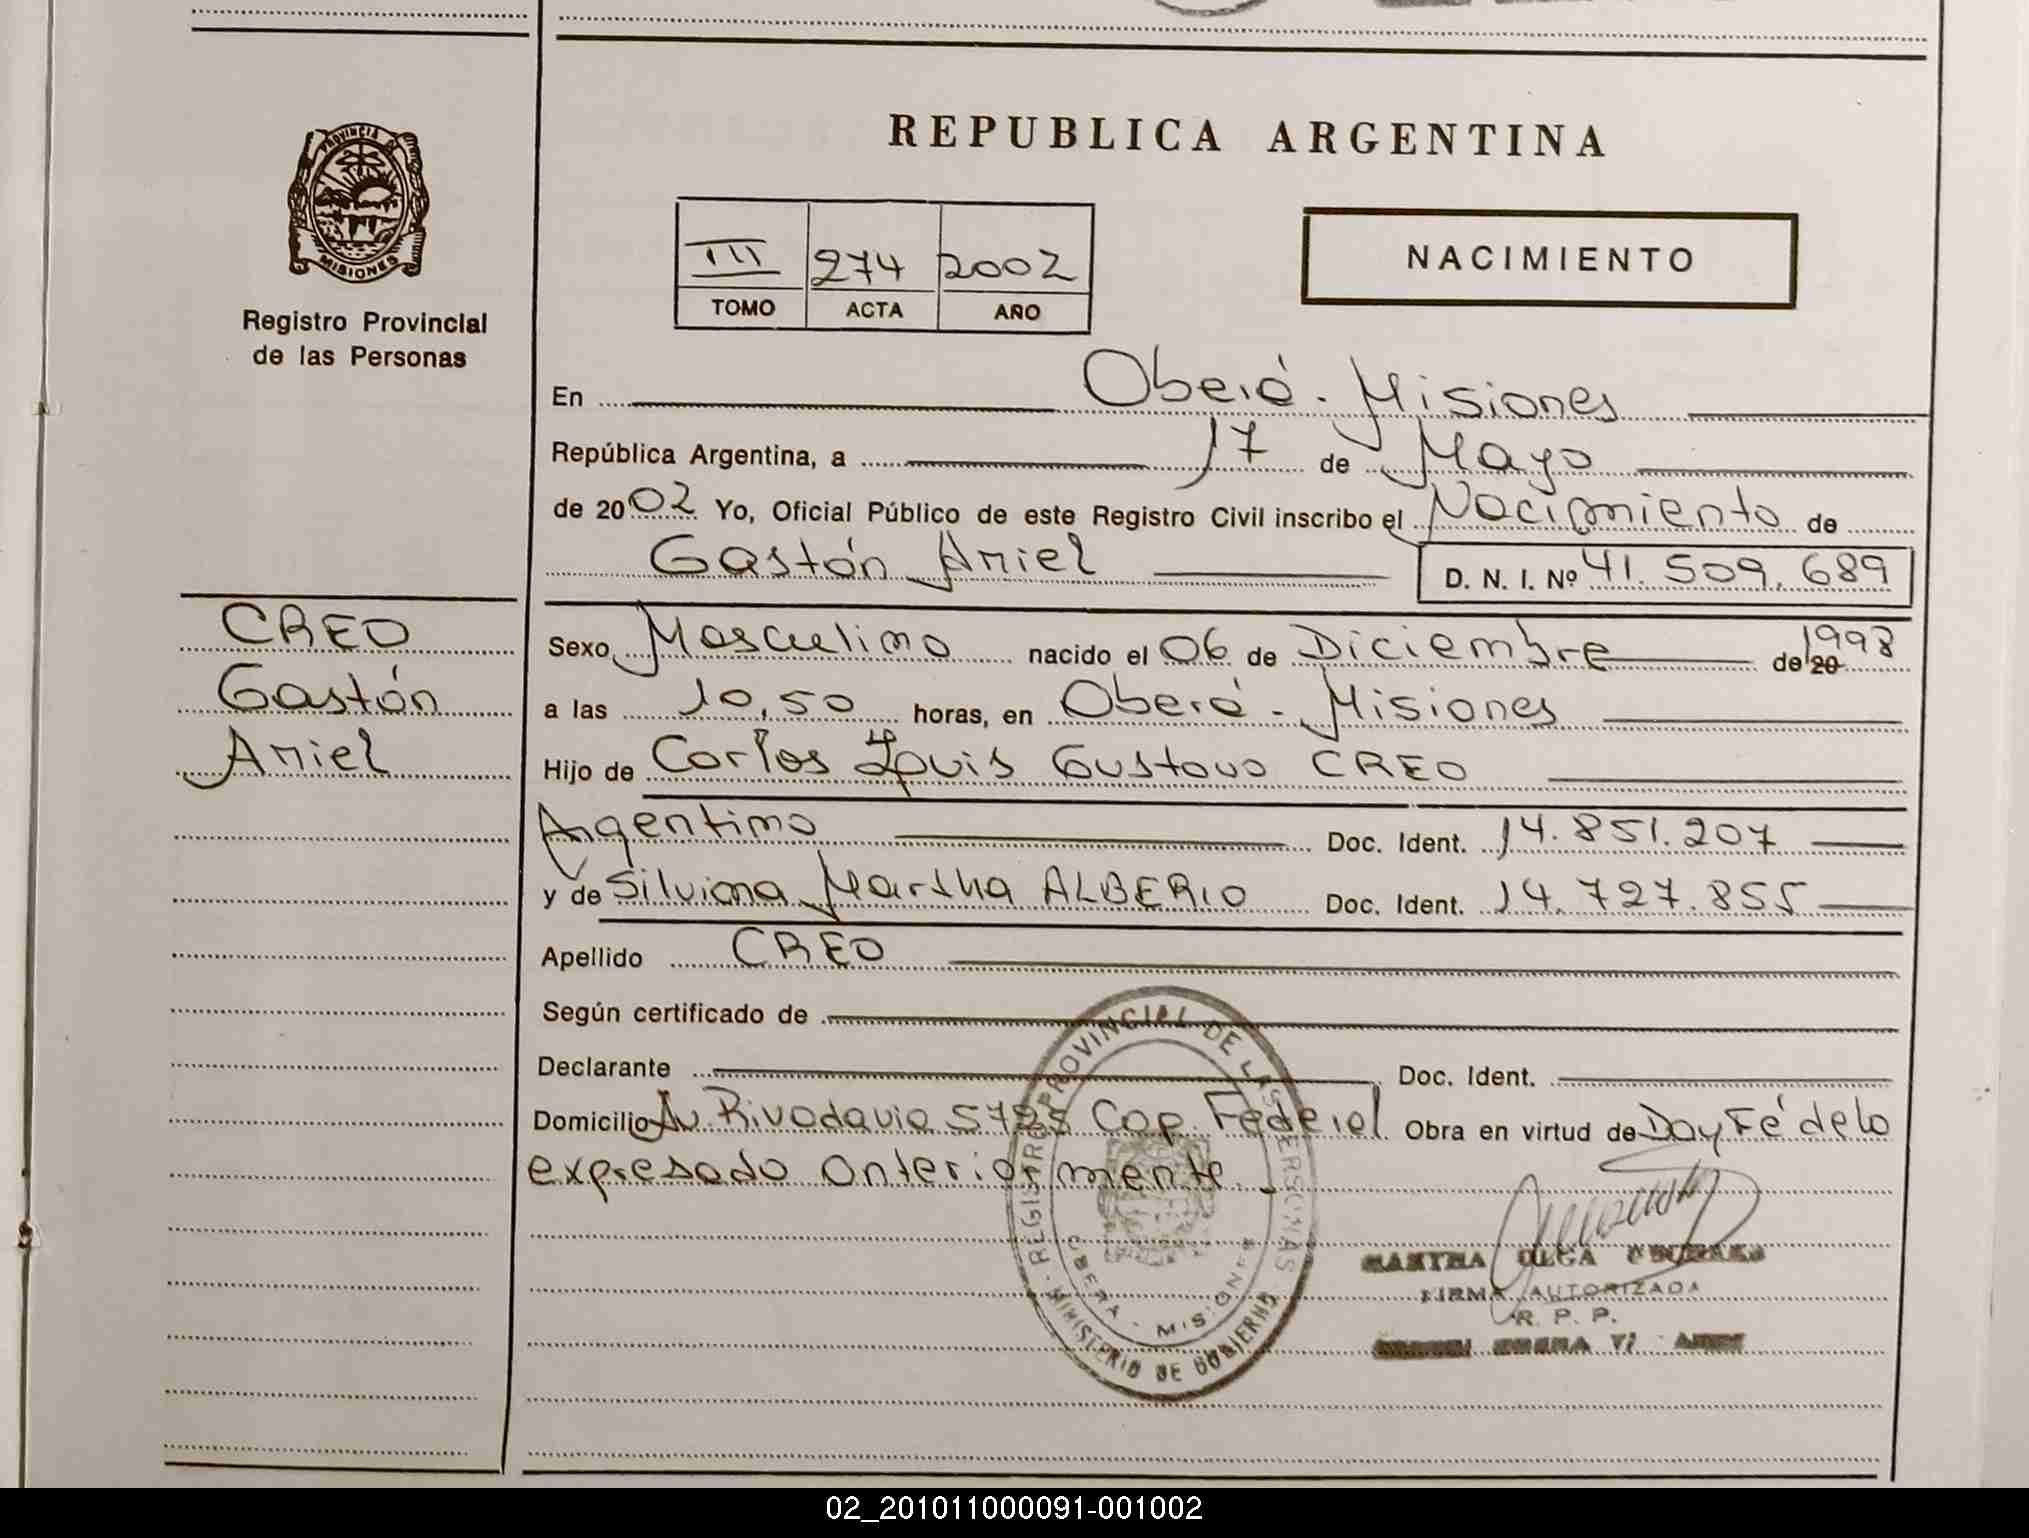 PROVINCIA
MISIONES
Registro Provincial
de las Personas
CREO
Gastón
Ariel
REPUBLICA ARGENTINA
III 274 2002
TOMO ACTA AÑO
NACIMIENTO
En Oberá - Misiones
República Argentina, a 17 de Mayo
de 2002 Yo, Oficial Público de este Registro Civil inscribo el Nacimiento de
Gastón Ariel D. N. I. Nº 41.509.689
Sexo Masculino nacido el 06 de Diciembre de 20 1998
a las 10,50 horas, en Oberá - Misiones
Hijo de Carlos Luis Gustavo CREO
Argentino Doc. Ident. 14.851.207
y de Silvina Martha ALBERIO Doc. Ident. 14.727.855
Apellido CREO
Según certificado de
Declarante Doc. Ident.
Domicilio Av. Rivadavia 5725 Cap. Federal Obra en virtud de Doy Fé de lo
expresado anteriormente.-
REGISTRO PROVINCIAL DE LAS PERSONAS
MINISTERIO DE GOBIERNO
OBERA - MISIONES
MARTHA OLGA
FIRMA AUTORIZADA
R. P. P.
02_201011000091-001002